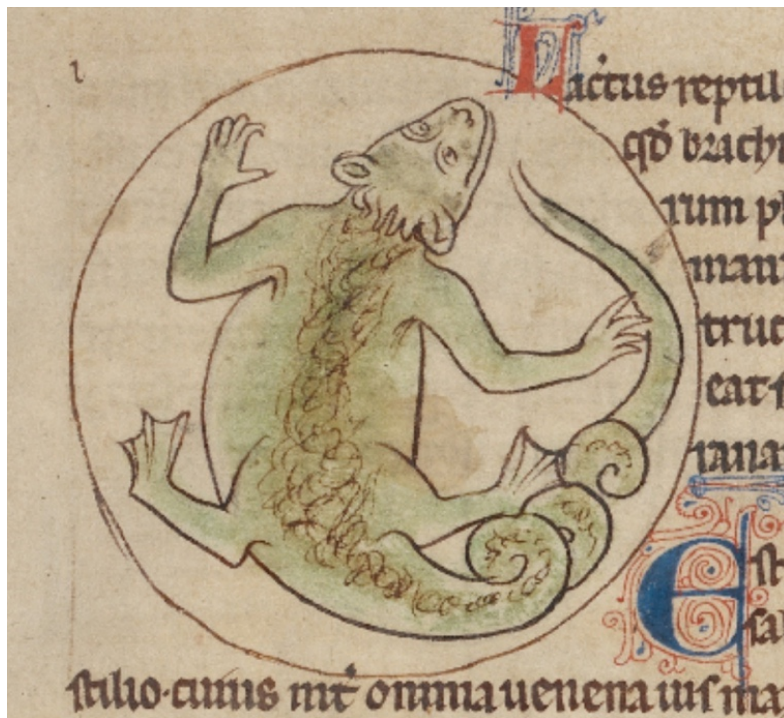 Lac̄tus reptil
qđ brachi
rum p
mau
truc
eat s
rana
Est
sal
stilio· cuius int̄ omnia uenena uis ma